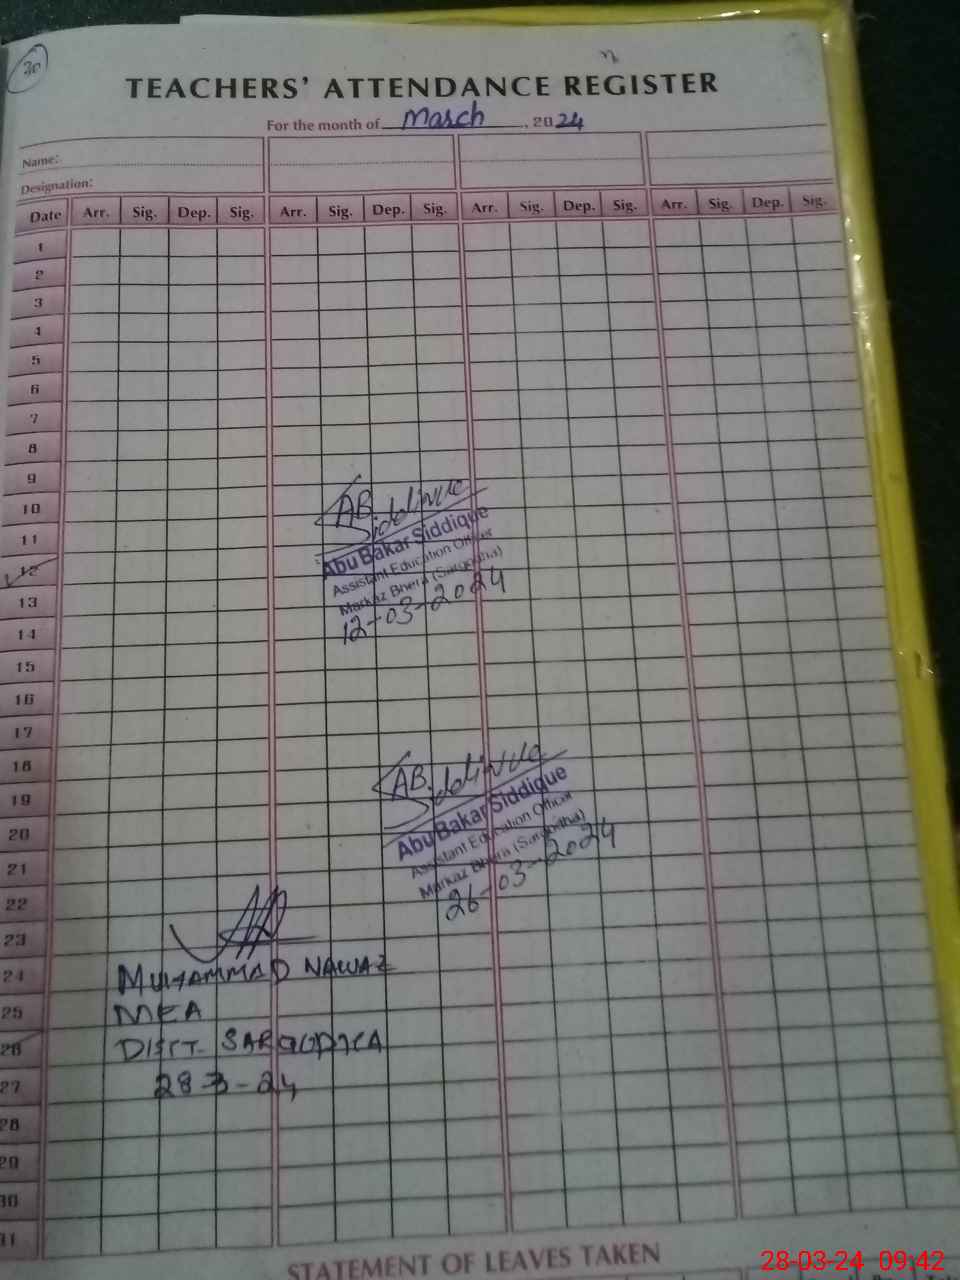 30
TEACHERS' ATTENDANCE REGISTER
For the month of March, 2024
Name:
Designation:
Date Arr. Sig. Dep. Sig. Arr. Sig. Dep. Sig. Arr. Sig. Dep. Sig. Arr. Sig. Dep. Sig.
1
2
3
4
5
6
7
8
9
10
11
12
13
14
15
16
17
18
19
20
21
22
23
24
25
26
27
28
29
30
31
AB Siddique
Abu Bakar Siddique
Assistant Education Officer
Markaz Bhera (Sargodha)
12-03-2024
AB Siddique
Abu Bakar Siddique
Assistant Education Officer
Markaz Bhera (Sargodha)
26-03-2024
MUHAMMAD NAWAZ
MEA
DISTT. SARGODHA
28-3-24
STATEMENT OF LEAVES TAKEN
28-03-24 09:42